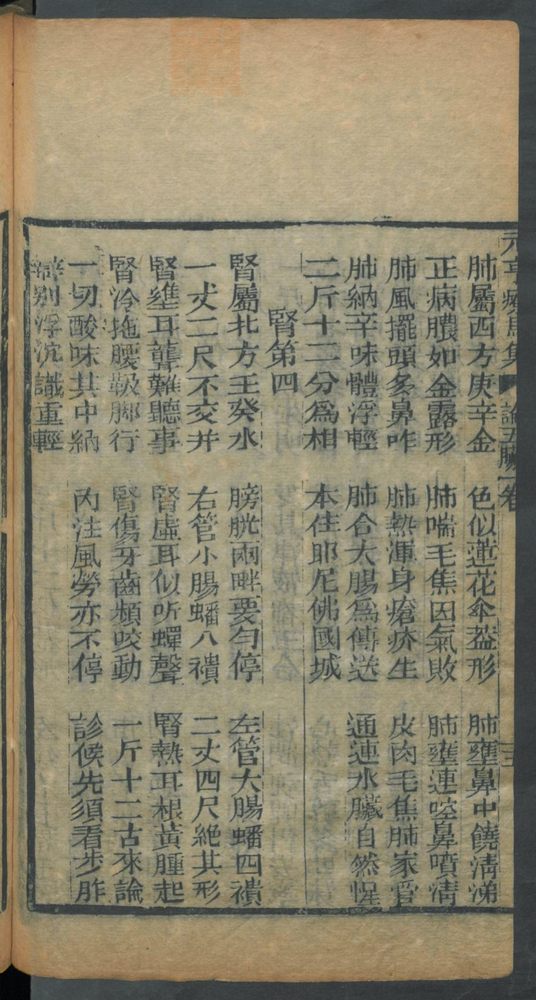 元亨療馬集 論五臟一卷
肺屬西方庚辛金 色似蓮花傘葢形 肺壅鼻中饒淸涕
正病膿如金露形 肺喘毛焦因氣敗 肺壅連啌鼻噴淸
肺風擺頭多鼻咋 肺熱渾身瘡疥生 皮肉毛焦肺家官
肺納辛味體浮輕 肺合大腸爲傳送 通連水臟自然惺
二斤十二分爲相 本住耶尼佛國城
腎第四
腎屬北方壬癸水 膀胱兩畔要勻停 左管大腸蟠四䙡
一丈二尺不交并 右管小腸蟠八䙡 二丈四尺絶其形
腎壅耳聾難聽事 腎虛耳似听蟬聲 腎熱耳根黃腫起
腎冷拖腰靸脚行 腎傷牙齒頻咬動 一斤十二古來論
一切酸味其中納 內注風勞亦不停 診候先須看步胙
辨別浮沉識重輕